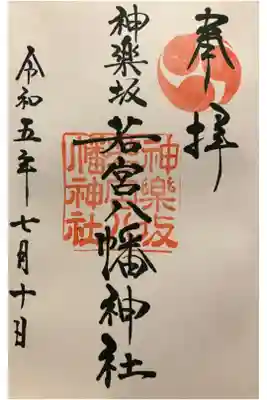 奉拝
神楽坂
若宮八幡神社
令和五年七月十日
神楽坂
若宮八
幡神社